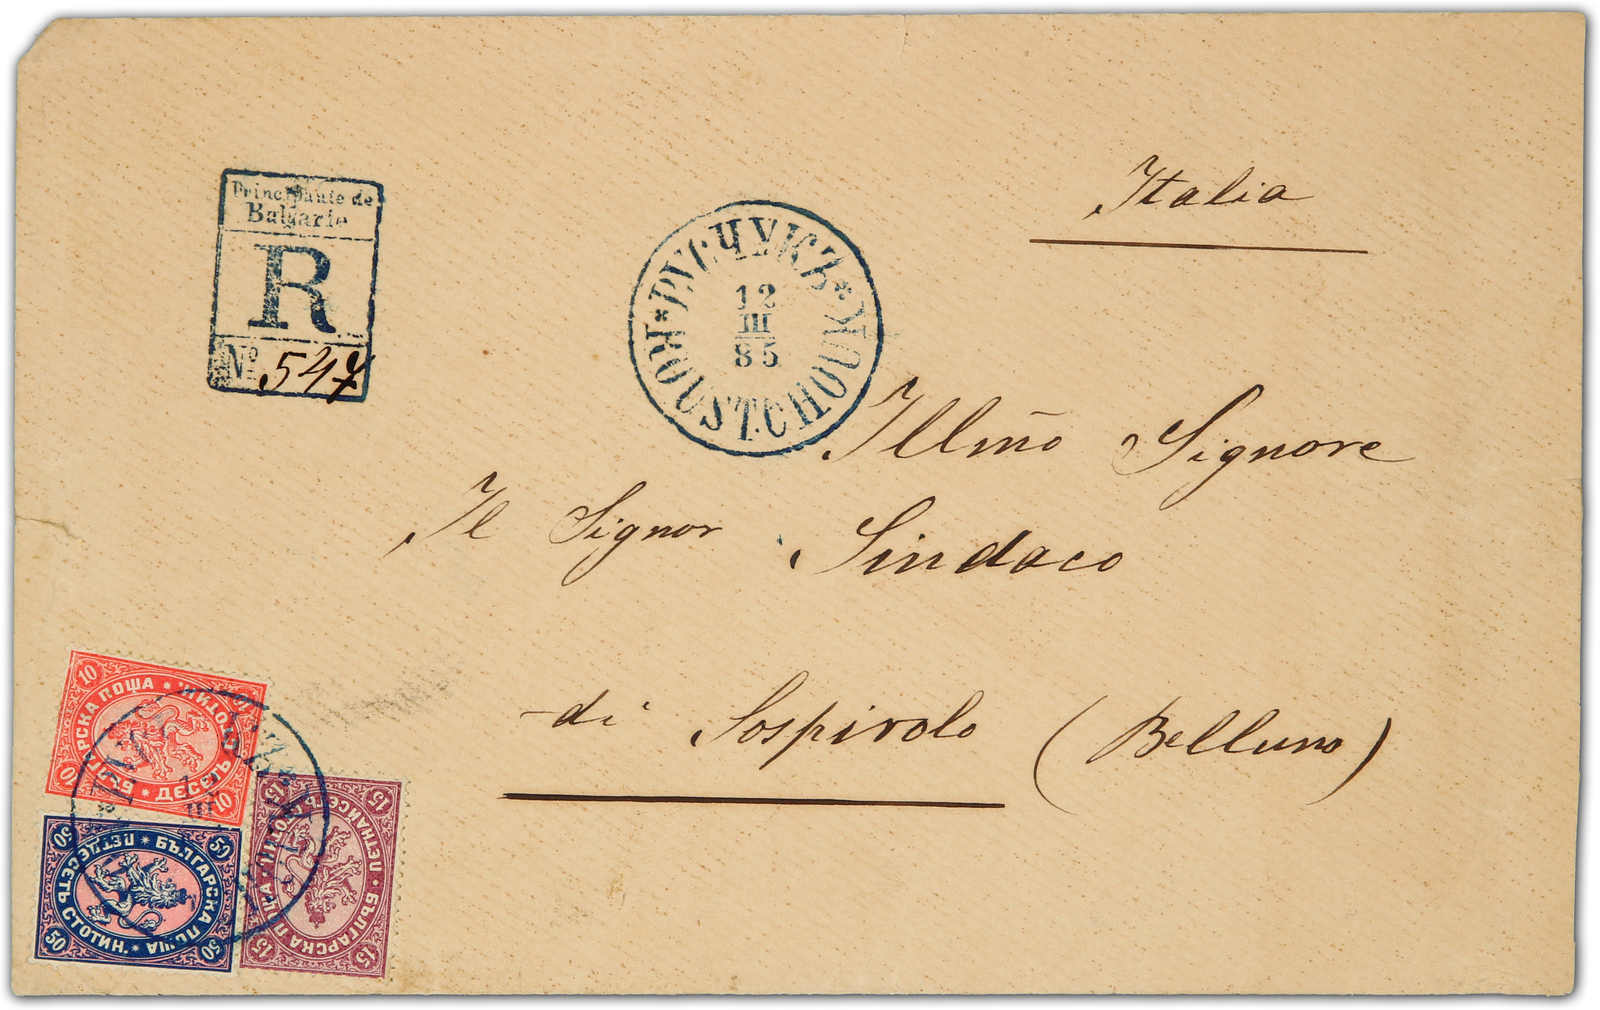 Principaute de
Bulgarie
R
No 547
* РУСЧУКЪ * ROUSTCHOUK
12
III
85
Italia
Illmo Signore
Il Signor Sindaco
di Sospirolo (Belluno)
10 10 10 10
БЪЛГАРСКА ПОЩА * ДЕСЕТЬ СТОТИН. *
50 50 50 50
БЪЛГАРСКА ПОЩА * ПЕТДЕСЕТЬ СТОТИН. *
15 15 15 15
БЪЛГАРСКА ПОЩА * ПЕТНАИСЕТЬ СТОТИН. *